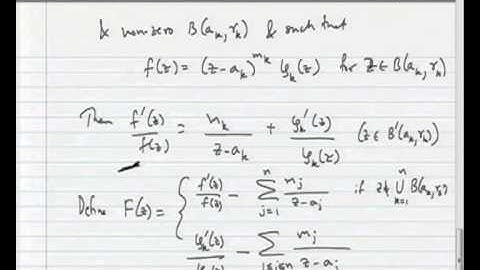 & nonzero B(a_k, r_k) & such that
f(z) = (z-a_k)^{m_k} φ_k(z) for z ∈ B(a_k, r_k)
Then f'(z)/f(z) = n_k/(z-a_k) + φ_k'(z)/φ_k(z) (z ∈ B'(a_k, r_k))
Define F(z) = { f'(z)/f(z) - Σ_{j=1}^{n} m_j/(z-a_j) if z ∉ ∪_{k=1}^{n} B(a_k, r_k)
φ_k'(z)/φ_k(z) - Σ_{1≤j≤n} m_j/(z-a_j)